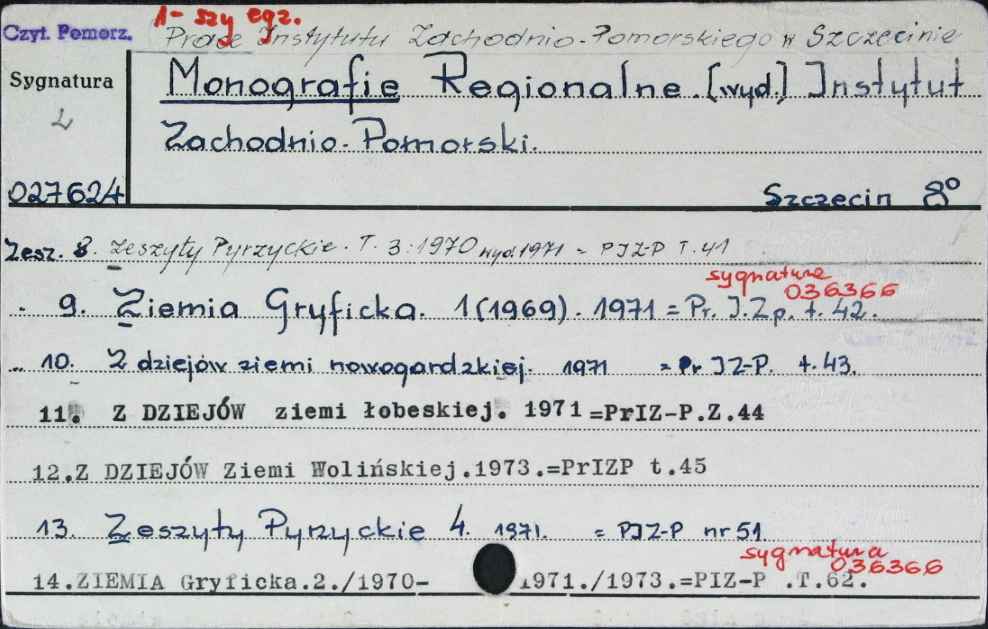 1-szy egz.
Czyt. Pomorz. Prace Instytutu Zachodnio-Pomorskiego w Szczecinie
Sygnatura Monografie Regionalne. [wyd.] Instytut
Zachodnio-Pomorski.
027624 Szczecin 8°
Zesz. 8. Zeszyty Pyrzyckie. T. 3:1970 wyd. 1971 = PIZ-P T. 41
sygnatura
036366
9. Ziemia Gryficka. 1(1969). 1971 = Pr. I.Zp. t. 42.
„ 10. Z dziejów ziemi nowogardzkiej. 1971 = Pr IZ-P. t. 43.
11. Z DZIEJÓW ziemi łobeskiej. 1971=PrIZ-P.Z.44
12.Z DZIEJÓW Ziemi Wolińskiej.1973.=PrIZP t.45
13. Zeszyty Pyrzyckie 4. 1971. = PIZ-P nr 51
sygnatura
036366
14.ZIEMIA Gryficka.2./1970- 1971./1973.=PIZ-P .T.62.